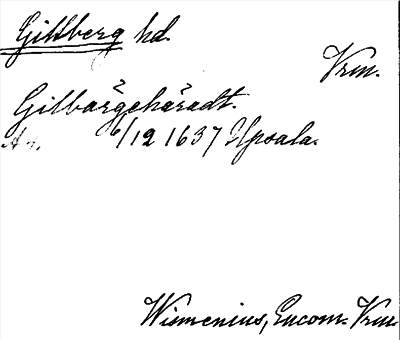 Gillberg hd.
Vrm.
Gilbärgehäradt.
6/12 1637 Upsala.
Wismenius, Encom. Vrm.